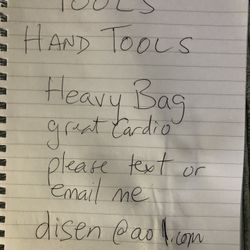 TOOLS
HAND TOOLS
Heavy Bag
great Cardio
please text or
email me
disen@aol.com